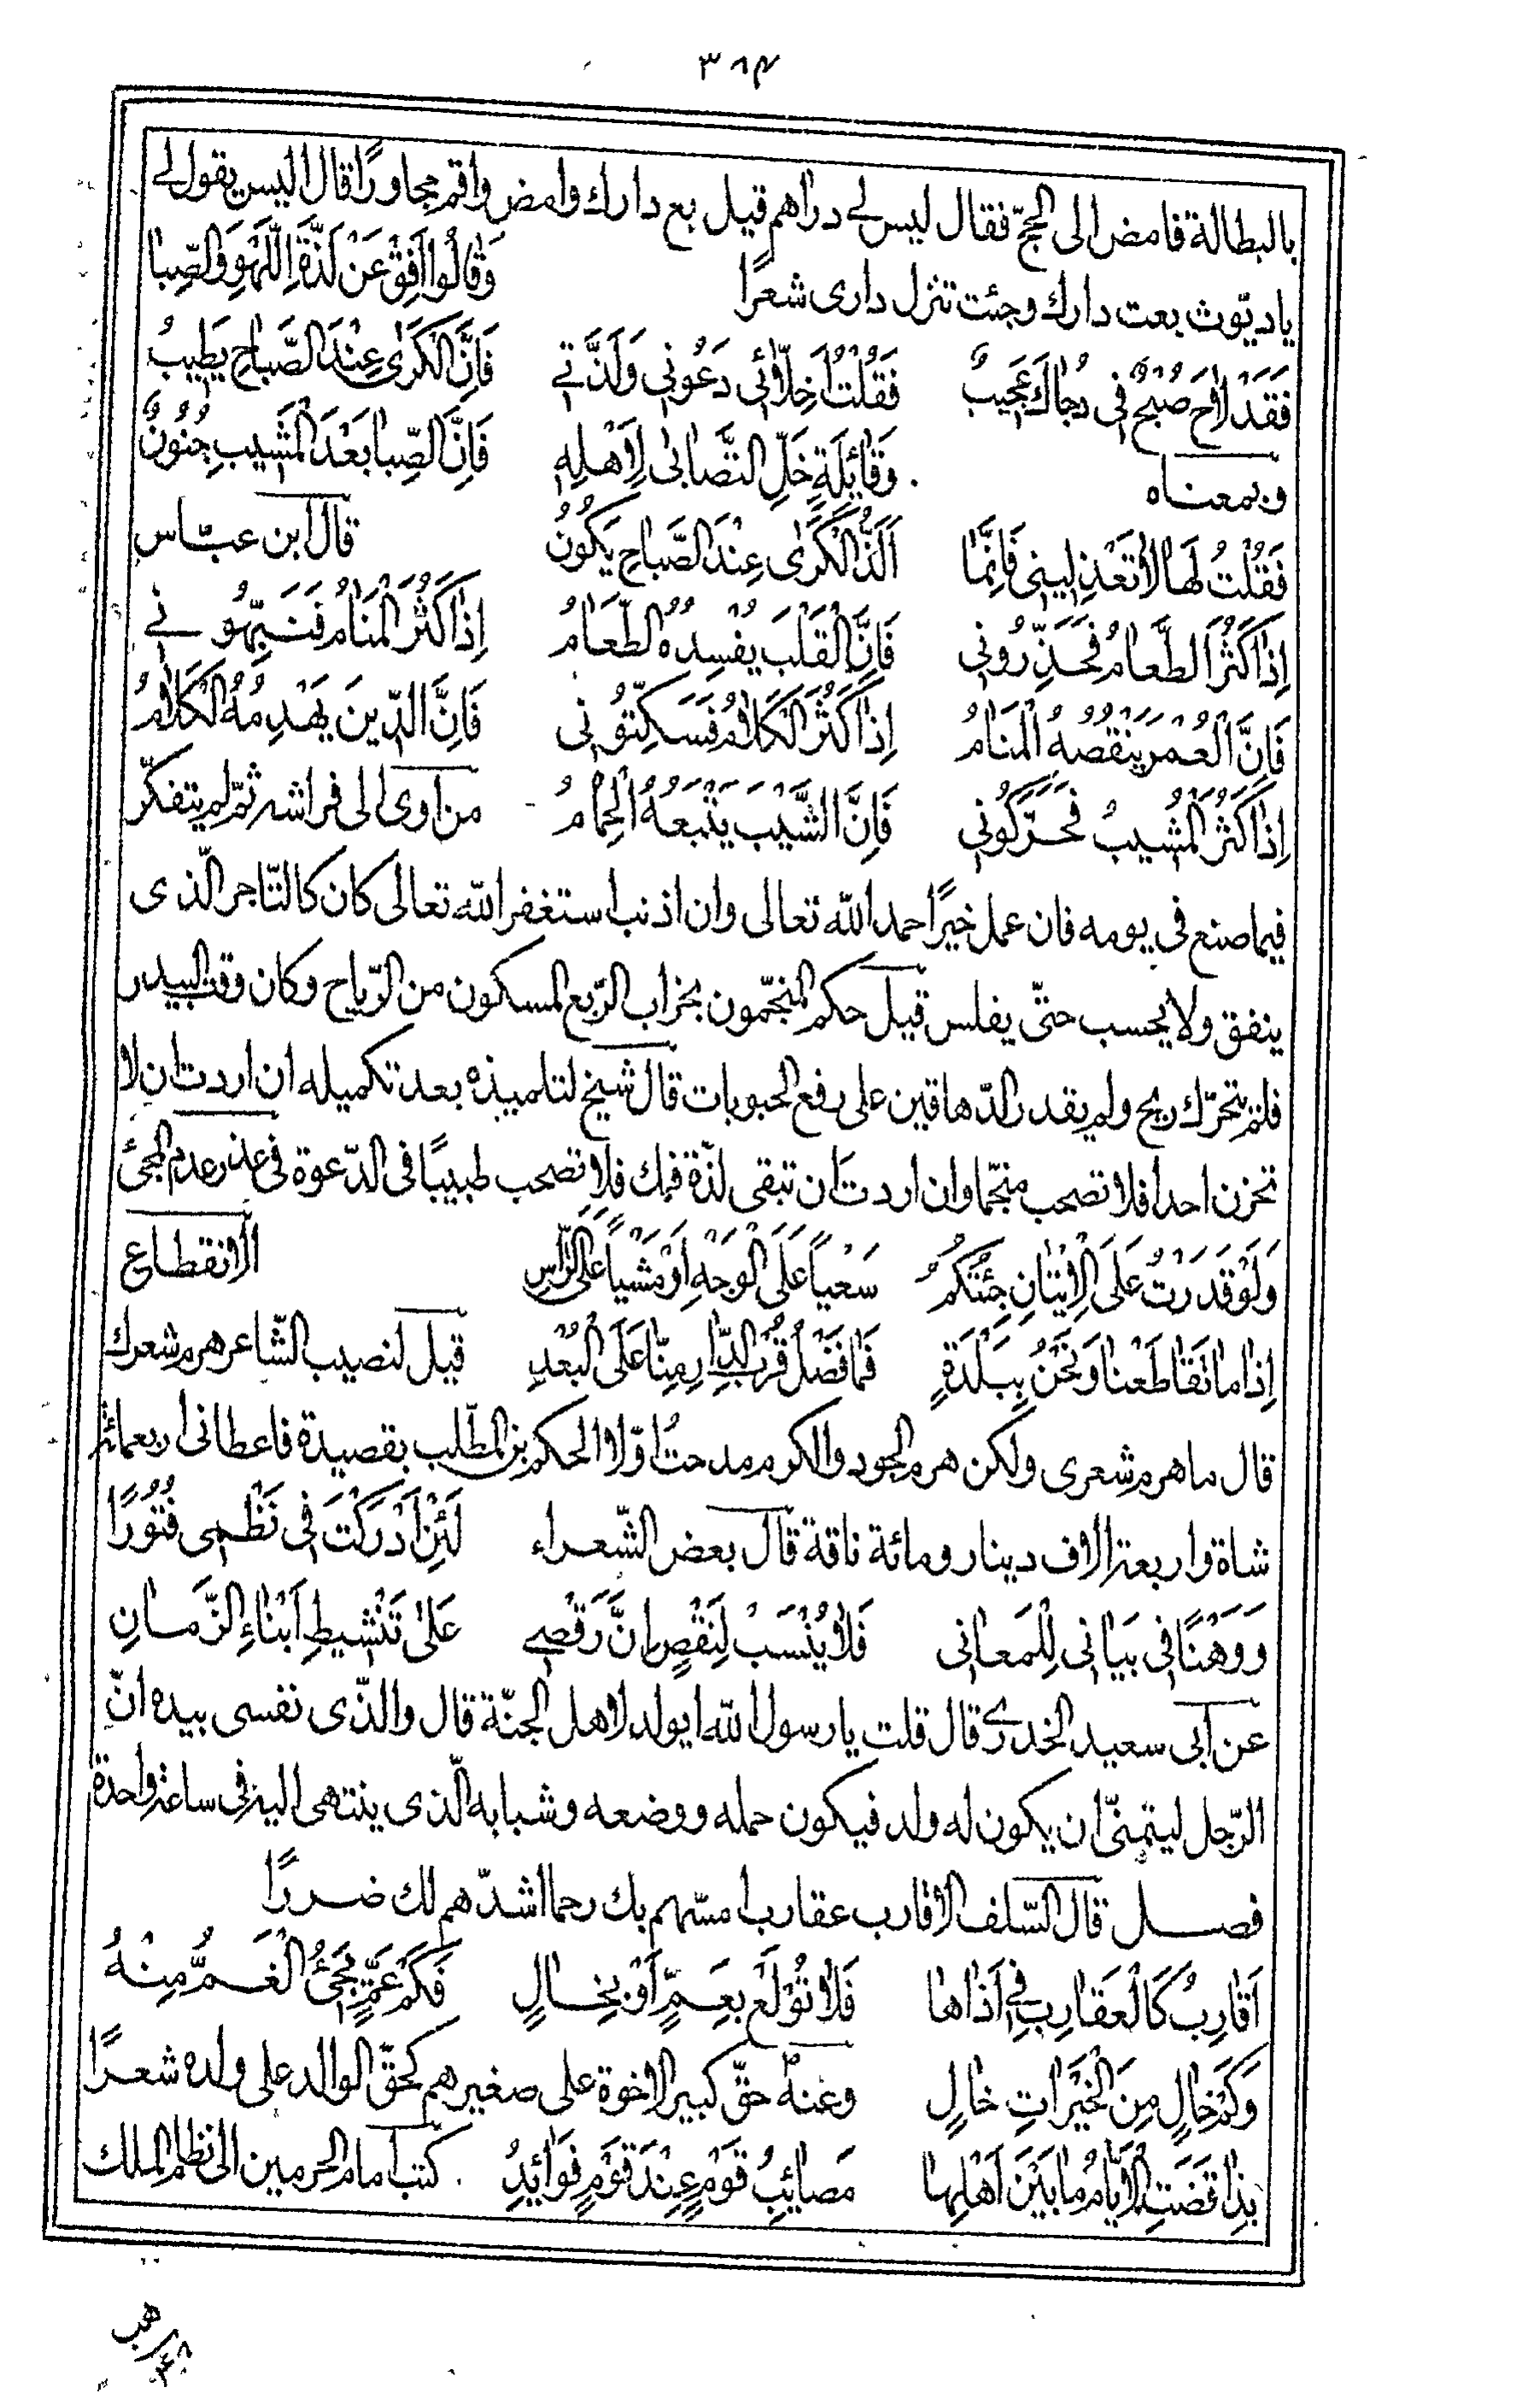 ٣٨٤
بالبطالة فامض الى الحجّ فقال ليس لى دراهم قيل بع دارك وامض واقم مجاورًا قال اليس يقول لى
يا ديّوث بعت دارك وجئت تنزل دارى شعرًا وَقٰالُوا اَفِقْ عَنْ لَذَّةِ اللَّهْوِ وَالصِّبا
فَقَدْ لاٰحَ صُبْحٌ فى دُجاكَ عَجيبٌ فَقُلْتُ اَخِلّائى دَعُونى وَلَذَّتى فَاِنَّ الْكَرٰى عِنْدَ الصَّباحِ يَطيبُ
وبمعناه وَقٰائِلَةٍ خَلِّ التَّصٰابى لِاَهْلِهِ فَاِنَّ الصِّبا بَعْدَ الْمَشيبِ جُنُونٌ
فَقُلْتُ لَهٰا لاٰ تَعْذِلينى فَاِنَّمٰا اَلَذُّ الْكَرٰى عِنْدَ الصَّباحِ يَكُونُ قال ابن عبّاس
اِذٰا كَثُرَ الطَّعٰامُ فَحَذِّرُونى فَاِنَّ الْقَلْبَ يُفْسِدُهُ الطَّعٰامُ اِذٰا كَثُرَ الْمَنٰامُ فَنَبِّهُونى
فَاِنَّ الْعُمْرَ يَنْقُصُهُ الْمَنٰامُ اِذٰا كَثُرَ الْكَلاٰمُ فَسَكِّتُونى فَاِنَّ الدّينَ يَهْدِمُهُ الْكَلاٰمُ
اِذٰا كَثُرَ الْمَشيبُ فَحَرِّكُونى فَاِنَّ الشَّيْبَ يَتْبَعُهُ الْحِمٰامُ من اوى الى فراشه ثمّ لم يتفكّر
فيما صنع فى يومه فان عمل خيرًا حمد اللّه تعالى وان اذنب استغفر اللّه تعالى كان كالتّاجر الّذى
ينفق ولا يحسب حتّى يفلس قيل حكم المنجّمون بخراب الرّبع المسكون من الرّياح وكان وقت البيدر
فلم يتحرّك ريح ولم يقدر الدّهاقين على رفع الحبوبات قال شيخ لتلميذه بعد تكميله ان اردت ان لا
تحزن احدا فلا تصحب منجّما وان اردت ان تبقى لذّة فمك فلا تصحب طبيبًا فى الدّعوة فى عذر عدم المجئ
وَلَوْ قَدَرْتُ عَلَى الْاِتْيٰانِ جِئْتُكُمُ سَعْياً عَلَى الْوَجْهِ اَوْ مَشْياً عَلَى الرَّاسِ الانقطاع
اِذٰا مٰا تَقٰاطَعْنا وَنَحْنُ بِبَلْدَةٍ فَمٰا فَضْلُ قُرْبِ الدّٰارِ مِنّٰا عَلَى الْبُعْدِ قيل لنصيب الشّاعر هرم شعرك
قال ما هرم شعرى ولكن هرم الجود والكرم مدحت اوّلا الحكم بن المطّلب بقصيدة فاعطانى اربعمائة
شاة واربعة الاف دينار ومائة ناقة قال بعض الشّعراء لَئِنْ اَدْرَكْتَ فى نَظْمى فُتُورًا
وَوَهْنًا فى بَيٰانى لِلْمَعٰانى فَلاٰ يُنْسَبْ لِنَقْصٍ اِنَّ رَقْصى عَلىٰ تَنْشيطِ اَبْنٰاءِ الزَّمٰانِ
عن ابى سعيد الخدرى قال قلت يا رسول اللّه ايولد لاهل الجنّة قال والّذى نفسى بيده انّ
الرّجل ليتمنّى ان يكون له ولد فيكون حمله ووضعه وشبابه الّذى ينتهى اليه فى ساعة واحدة
فصل قال السّلف الاقارب عقارب امسّهم بك رحما اشدّهم لك ضررًا
اَقٰارِبُ كَالْعَقٰارِبِ فى اَذٰاهٰا فَلاٰ تُولَعْ بِعَمٍّ اَوْ بِخٰالٍ فَكَمْ عَمٍّ يَجئُ الْغَمُّ مِنْهُ
وَكَمْ خٰالٍ مِنَ الْخَيْراتِ خٰالٍ وعنه حقّ كبير الاخوة على صغيرهم كحقّ الوالد على ولده شعرًا
بِذٰا قَضَتِ الْاَيّٰامُ مٰا بَيْنَ اَهْلِهٰا مَصٰائِبُ قَوْمٍ عِنْدَ قَوْمٍ فَوٰائِدُ كتب امام الحرمين الى نظام الملك